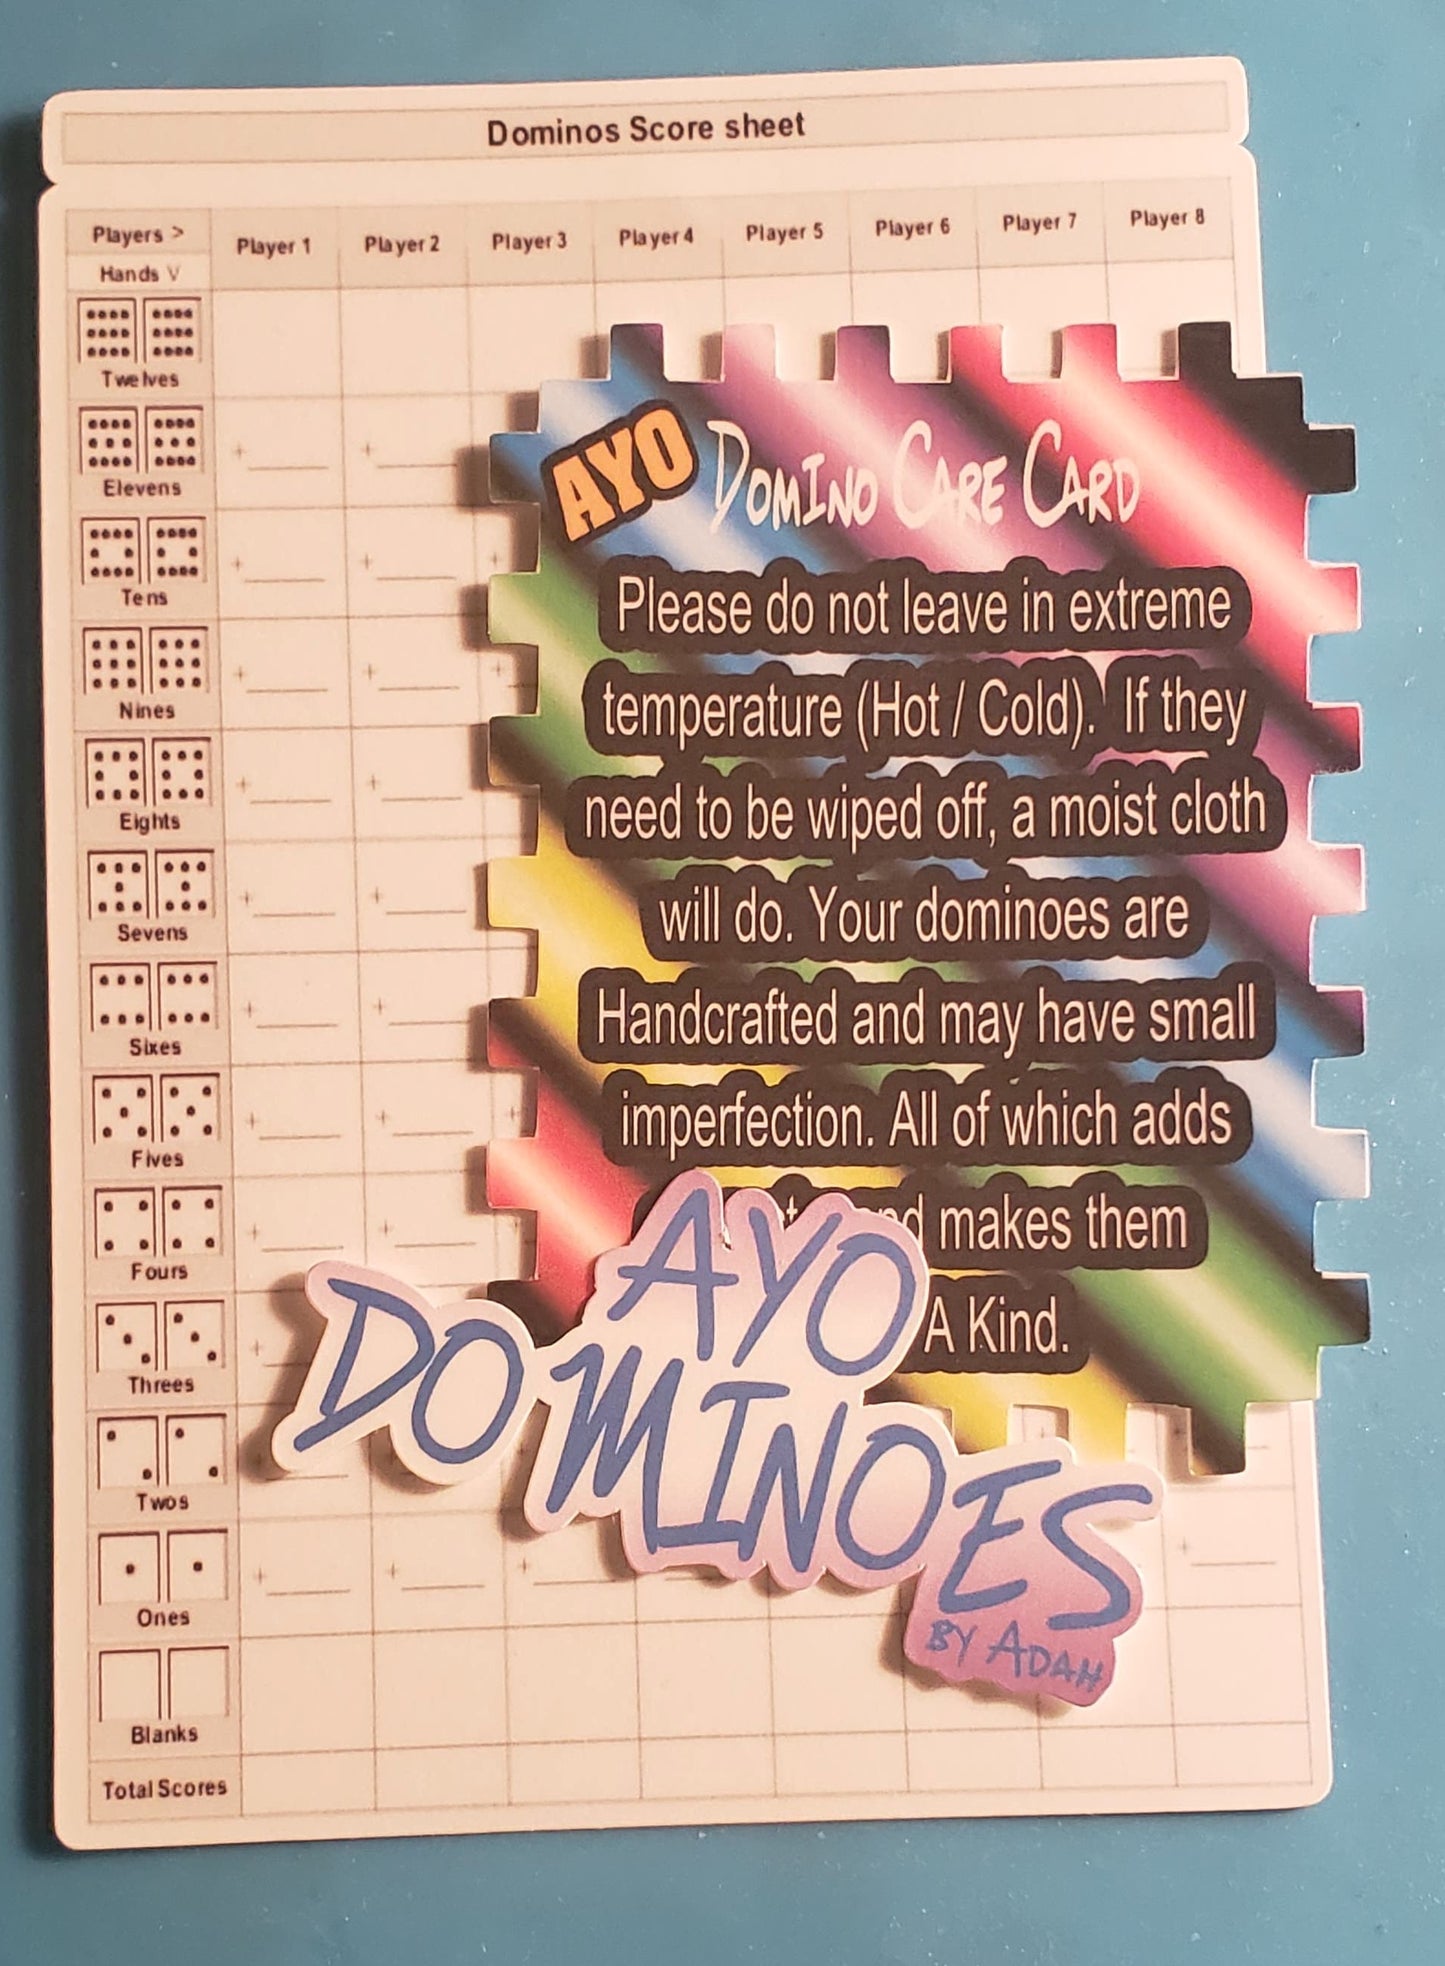 Dominos Score sheet
Players > Player 1 Player 2 Player 3 Player 4 Player 5 Player 6 Player 7 Player 8
Hands V
Twelves
Elevens
Tens
Nines
Eights
Sevens
Sixes
Fives
Fours
Threes
Twos
Ones
Blanks
Total Scores
AYO Domino Care Card
Please do not leave in extreme
temperature (Hot / Cold). If they
need to be wiped off, a moist cloth
will do. Your dominoes are
Handcrafted and may have small
imperfection. All of which adds
makes them
A Kind.
AYO
DOMINOES
BY ADAH